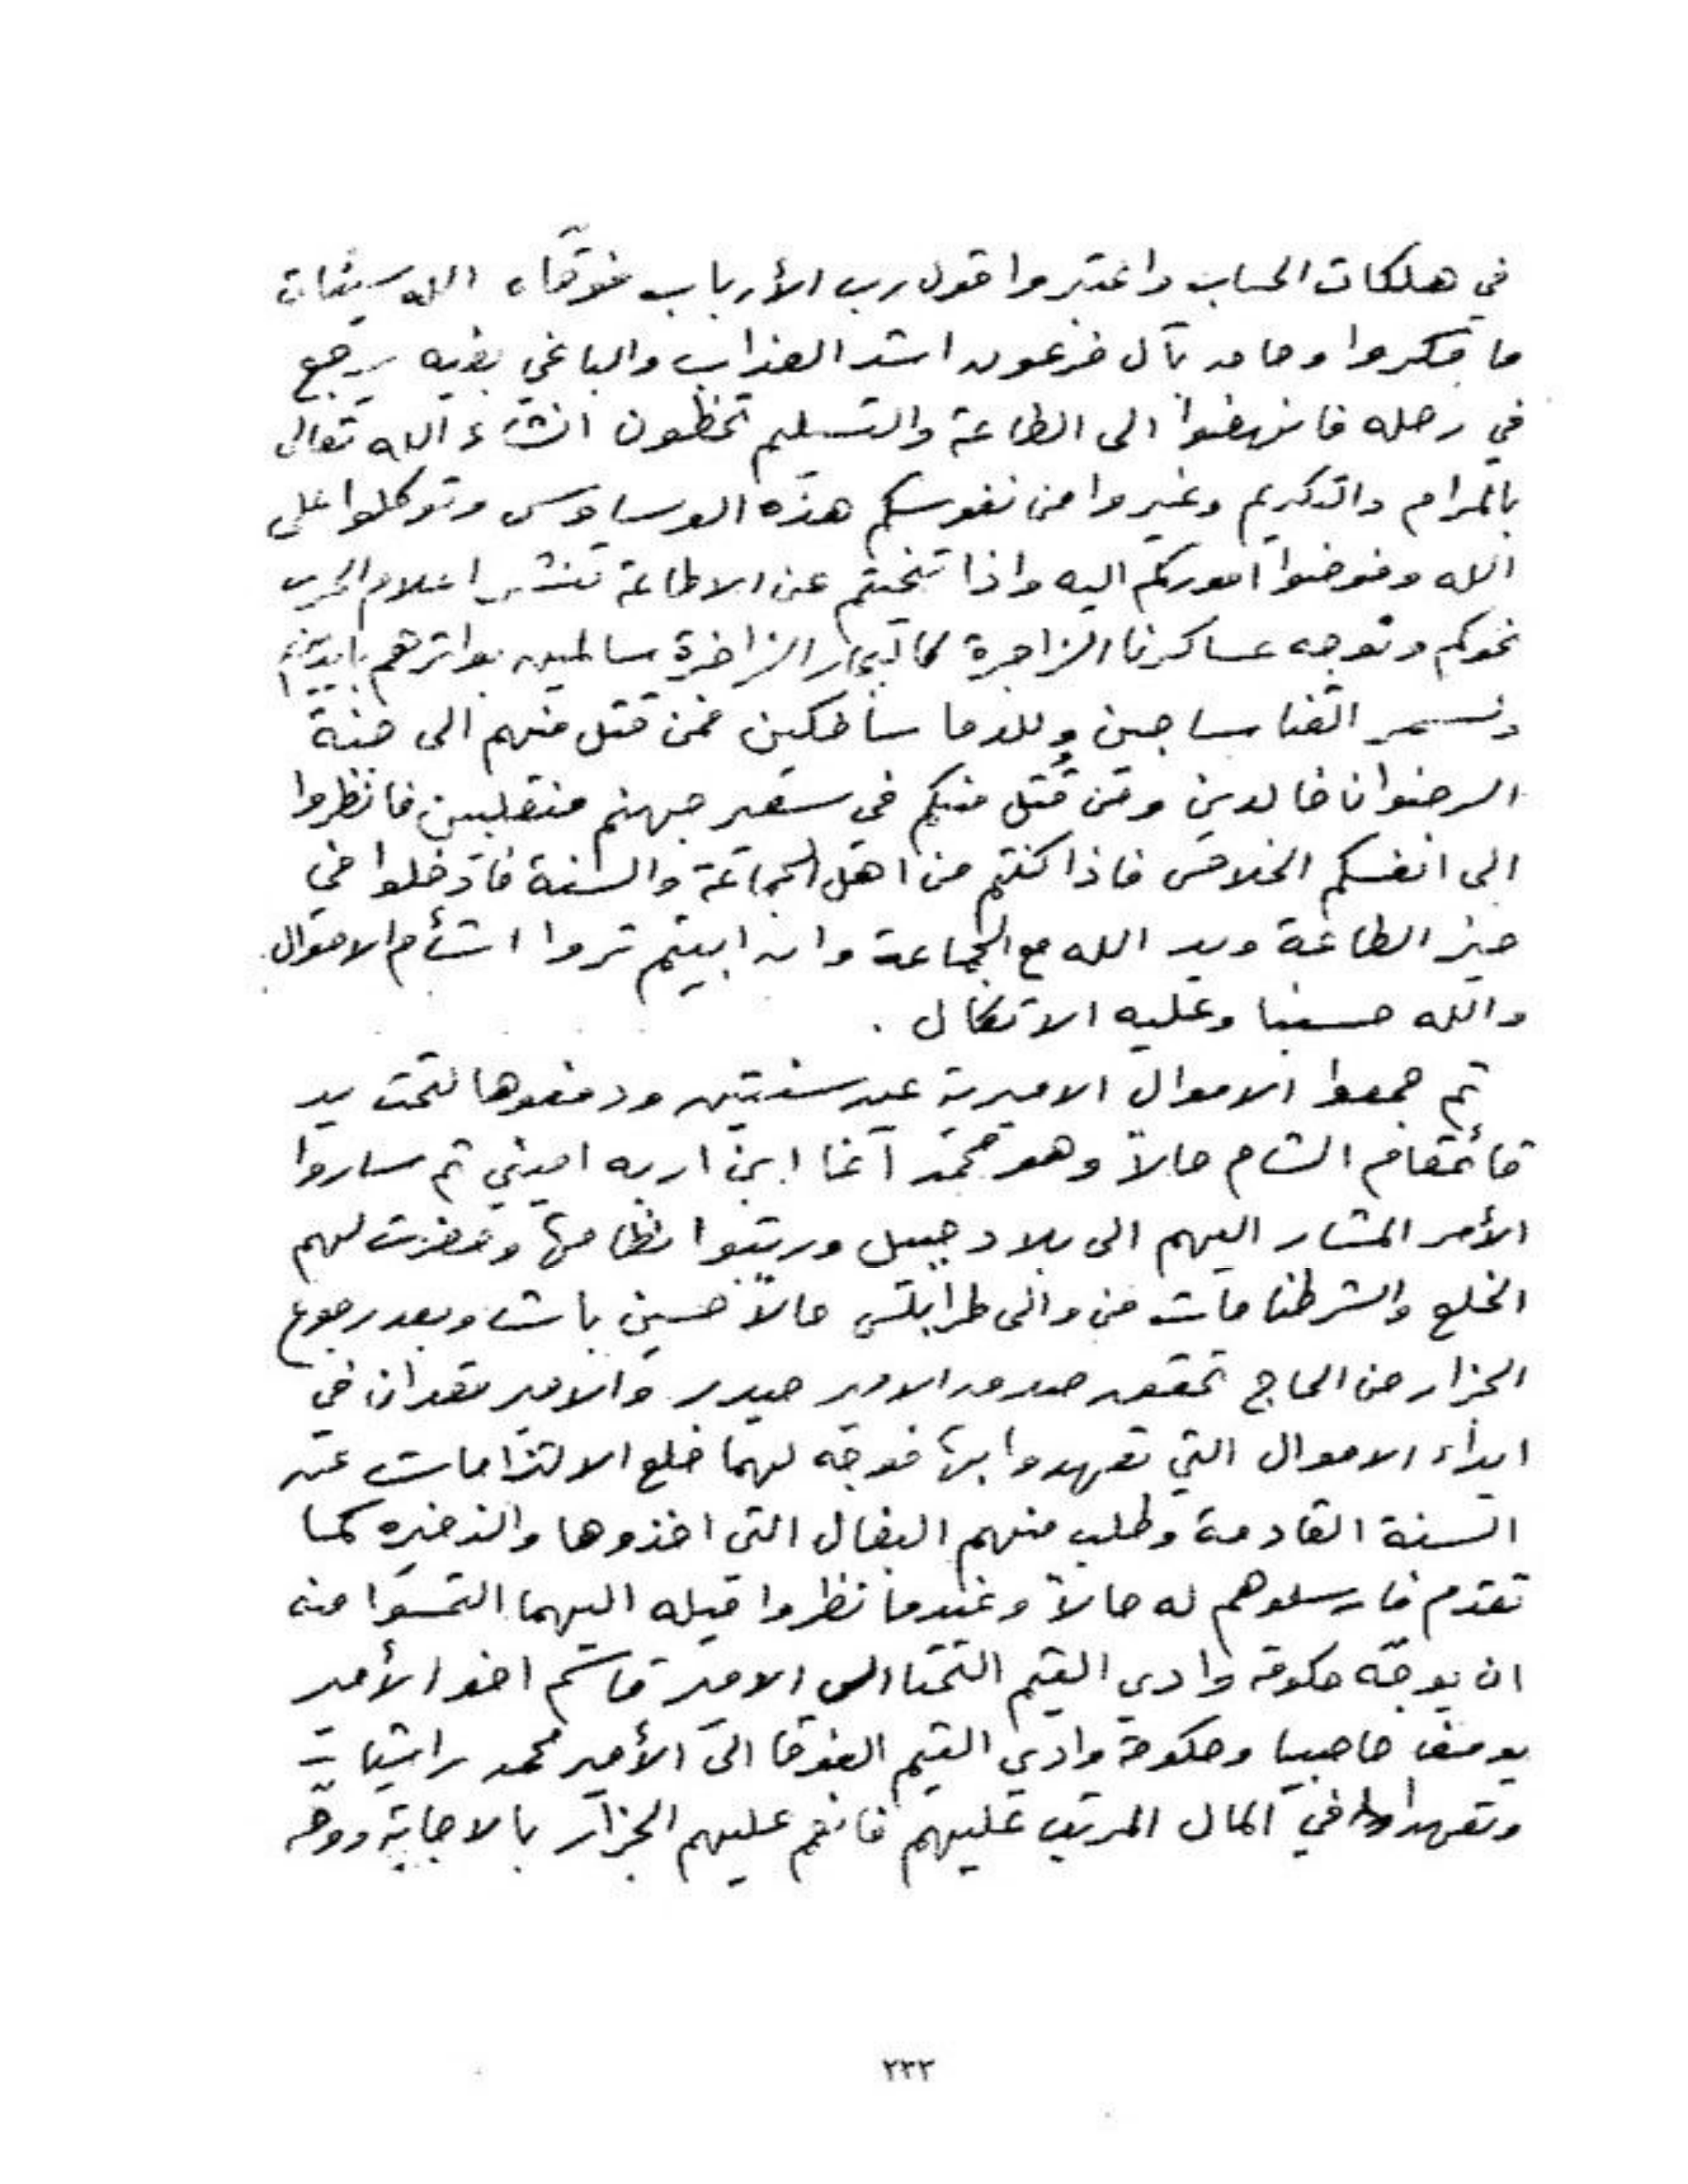 في هلكات الحساب واعتبروا قول رب الأرباب فوقاه الله سيئات
ما مكروا وحاق بآل فرعون اشد العذاب والباغي بغيه يرجع
في رحله فانهضوا الى الطاعة والتسليم تحظون انشاء الله تعالى
بالمرام والتكريم وغيروا من نفوسكم هذه الوساوس وتوكلوا على
الله وفوضوا اموركم اليه واذا تنحيتم عن الاطاعة تنشر اعلام الحرب
نحوكم وتوجه عساكرنا الزاجرة كالبحار الزاخرة سالمين بواترهم
وسمر القنا ساحبين وللدما سافكين فمن قتل منهم الى جنة
الرضوان خالدين ومن قُتل منكم في سعير جهنم منقلبين فانظروا
الى انفسكم الخلاص فاذا كنتم من اهل الجماعة والسنة فادخلوا في
حيز الطاعة ويد الله مع الجماعة وان ابيتم تروا اشأم الاحوال
والله حسبنا وعليه الاتكال .
ثم جمعوا الاموال الاميرية عن سنتين ودفعوها لتحت يد
قائمقام الشام حالاً وهو محمد آغا ابن اربه اميني ثم ساروا
الأمر المشار اليهم الى بلاد جبيل ورتبوا نظامها وحضرت لهم
الخلع والشرطنامات من والى طرابلس حالاً حسين باشا وبعد رجوع
الجزار من الحاج تحقق صدق الامير حيدر والامير قعدان في
ايداء الاموال التي تعهدوا بها فوجه لهما خلع الالتزامات عن
السنة القادمة وطلب منهم البغال التى اخذوها والذخيره كما
تقدم فارسلوهم له حالاً وعندما نظروا ميله اليهما التمسوا منه
ان يوجّه حكومة وادي التيم التحتا الى الامير قاسم اخو الأمير
يوسف حاصبيا وحكومة وادي التيم الفوقا الى الأمير محمد راشيا
وتعهدا في المال المرتب عليهم فانعم عليهم الجزار بالاجابة ووجه
٢٣٣